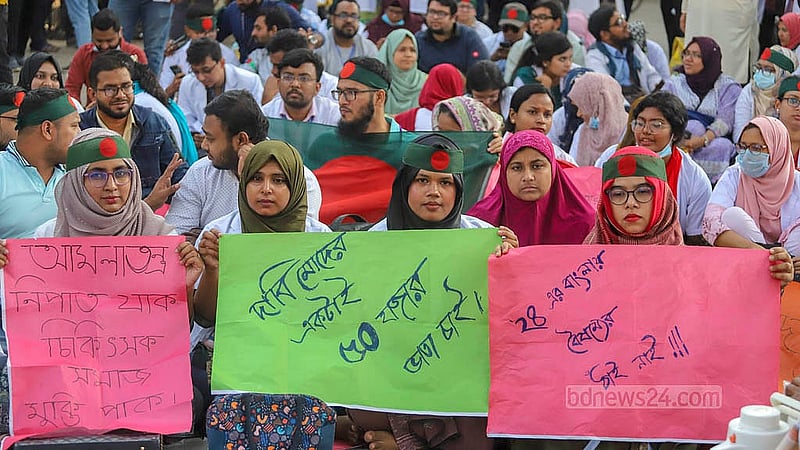 আমলাতন্ত্র
নিপাত যাক
চিকিৎসক
সমাজ
মুক্তি পাক।
দাবি মোদের
একটাই
৫০ হাজার
ভাতা চাই।
24 এর বাংলায়
বৈষম্যের
ঠাঁই নাই!!!
bdnews24.com